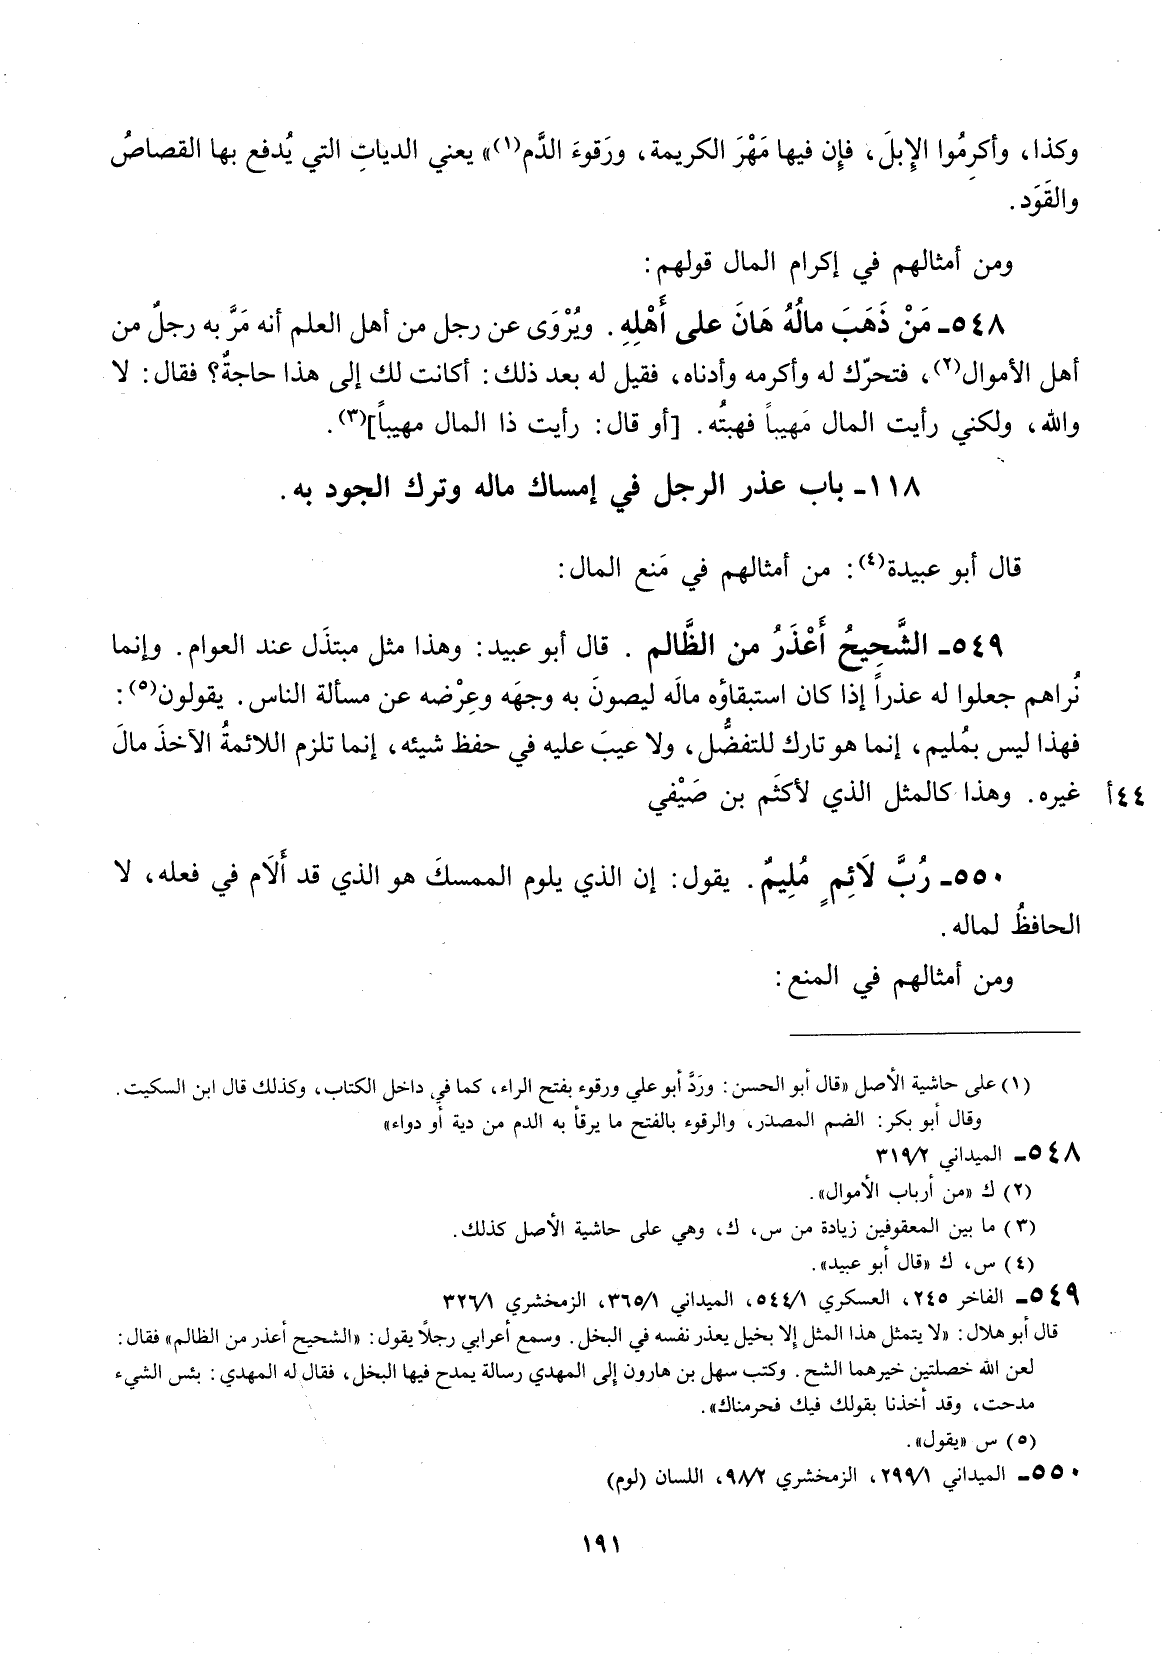 وكذا، وأكرِمُوا الإِبلَ، فإِن فيها مَهْرَ الكريمة، ورَقوءَ الدَّم(١)» يعني الدياتِ التي يُدفع بها القصاصُ
والقَوَد.
ومن أمثالهم في إكرام المال قولهم:
٥٤٨ـ مَنْ ذَهَبَ مالُهُ هَانَ على أَهْلِهِ. ويُرْوَى عن رجل من أهل العلم أنه مَرَّ به رجلٌ من
أهل الأموال(٢)، فتحرّك له وأكرمه وأدناه، فقيل له بعد ذلك: أكانت لك إلى هذا حاجةٌ؟ فقال: لا
والله، ولكني رأيت المال مَهيباً فهبتُه. [أو قال: رأيت ذا المال مهيباً](٣).
١١٨ـ باب عذر الرجل في إمساك ماله وترك الجود به.
قال أبو عبيدة(٤): من أمثالهم في مَنع المال:
٥٤٩ـ الشَّحِيحُ أَعْذَرُ من الظَّالم. قال أبو عبيد: وهذا مثل مبتذَل عند العوام. وإنما
نُراهم جعلوا له عذراً إذا كان استبقاؤه مالَه ليصونَ به وجهَه وعِرْضه عن مسألة الناس. يقولون(٥):
فهذا ليس بمُليم، إنما هو تارك للتفضُّل، ولا عيبَ عليه في حفظ شيئه، إنما تلزم اللائمةُ الآخذَ مالَ
٤٤أ غيره. وهذا كالمثل الذي لأكثَم بن صَيْفي
٥٥٠ـ رُبَّ لَائِمٍ مُلِيمٌ. يقول: إن الذي يلوم الممسكَ هو الذي قد أَلَام في فعله، لا
الحافظُ لماله.
ومن أمثالهم في المنع:
(١) على حاشية الأصل «قال أبو الحسن: ورَدَّ أبو علي ورقوء بفتح الراء، كما في داخل الكتاب، وكذلك قال ابن السكيت.
وقال أبو بكر: الضم المصدَر، والرقوء بالفتح ما يرقأ به الدم من دية أو دواء»
٥٤٨ـ الميداني ٣١٩/٢
(٢) ك «من أرباب الأموال».
(٣) ما بين المعقوفين زيادة من س، ك، وهي على حاشية الأصل كذلك.
(٤) س، ك «قال أبو عبيد».
٥٤٩ـ الفاخر ٢٤٥، العسكري ٥٤٤/١، الميداني ٣٦٥/١، الزمخشري ٣٢٦/١
قال أبو هلال: «لا يتمثل هذا المثل إلا بخيل يعذر نفسه في البخل. وسمع أعرابي رجلاً يقول: «الشحيح أعذر من الظالم» فقال:
لعن الله خصلتين خيرهما الشح. وكتب سهل بن هارون إلى المهدي رسالة يمدح فيها البخل، فقال له المهدي: بئس الشيء
مدحت، وقد أخذنا بقولك فيك فحرمناك».
(٥) س «يقول».
٥٥٠ـ الميداني ٢٩٩/١، الزمخشري ٩٨/٢، اللسان (لوم)
١٩١